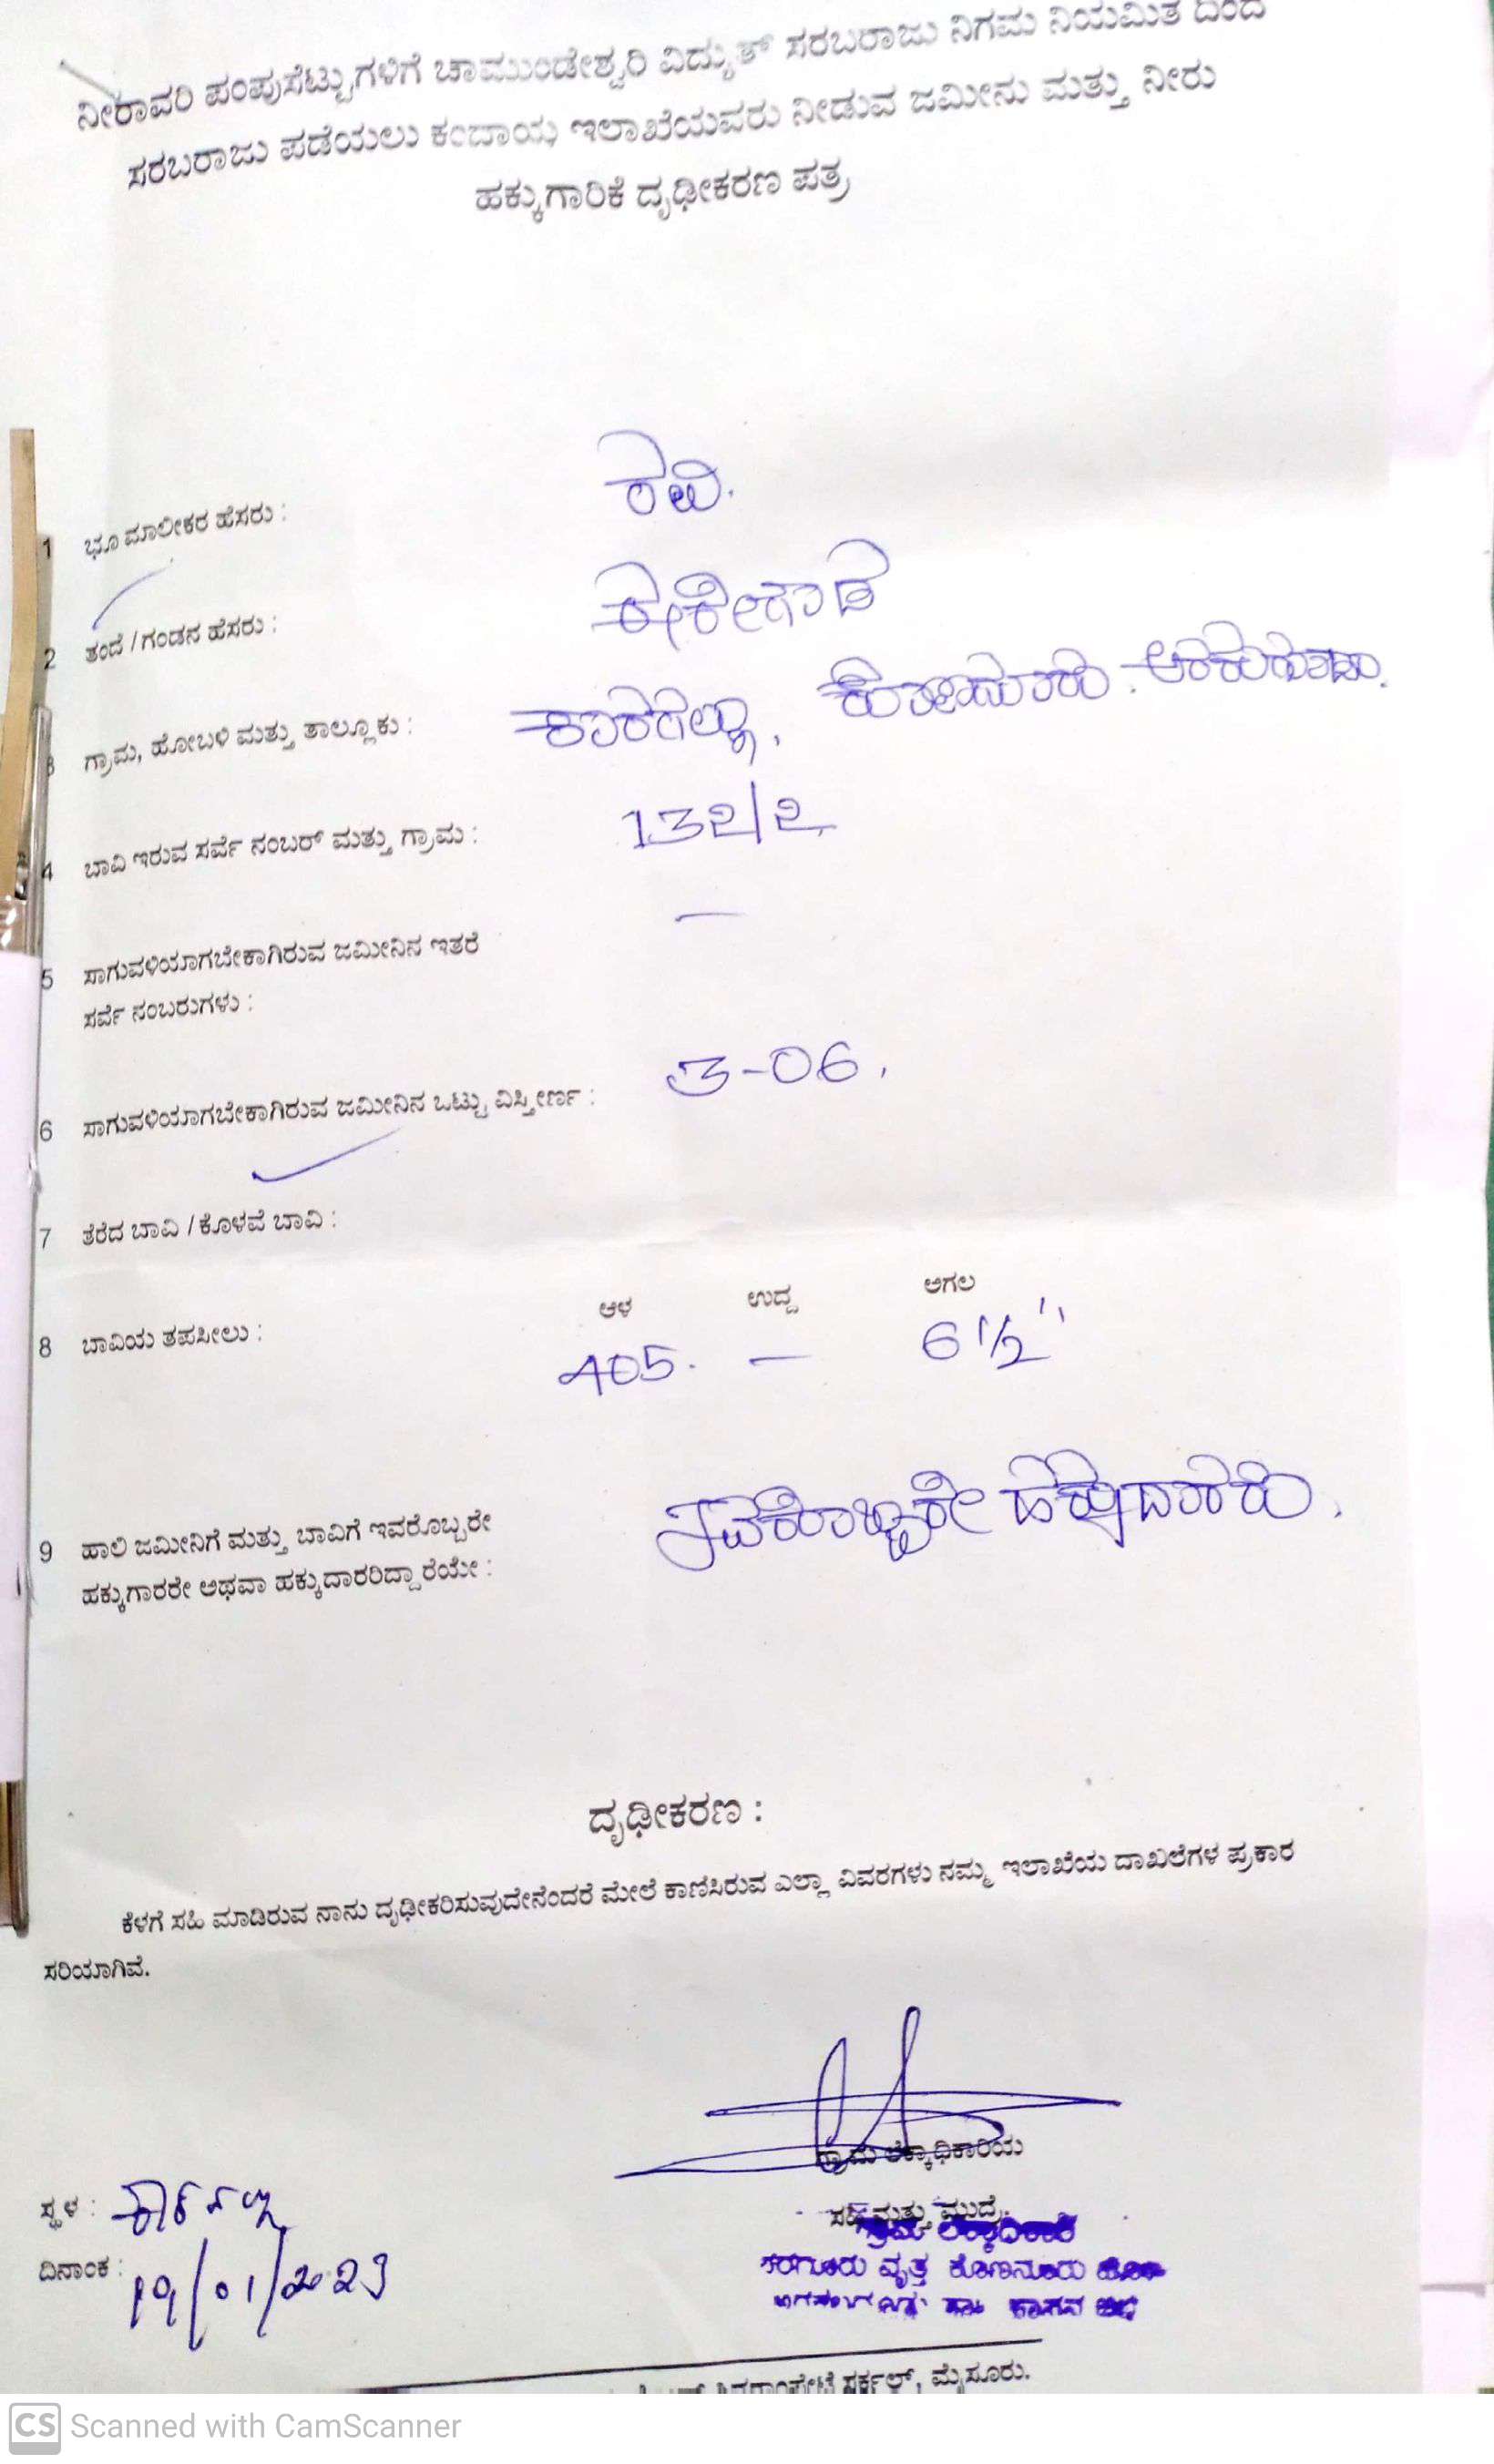 ನೀರಾವರಿ ಪಂಪುಸೆಟ್ಟುಗಳಿಗೆ ಚಾಮುಂಡೇಶ್ವರಿ ವಿದ್ಯುತ್ ಸರಬರಾಜು ನಿಗಮ ನಿಯಮಿತ ದಿಂದ
ಸರಬರಾಜು ಪಡೆಯಲು ಕಂದಾಯ ಇಲಾಖೆಯವರು ನೀಡುವ ಜಮೀನು ಮತ್ತು ನೀರು
ಹಕ್ಕುಗಾರಿಕೆ ದೃಢೀಕರಣ ಪತ್ರ
1 ಭೂ ಮಾಲೀಕರ ಹೆಸರು : ರವಿ.
2 ತಂದೆ / ಗಂಡನ ಹೆಸರು :
3 ಗ್ರಾಮ, ಹೋಬಳಿ ಮತ್ತು ತಾಲ್ಲೂಕು :
4 ಬಾವಿ ಇರುವ ಸರ್ವೆ ನಂಬರ್ ಮತ್ತು ಗ್ರಾಮ : 132/2
5 ಸಾಗುವಳಿಯಾಗಬೇಕಾಗಿರುವ ಜಮೀನಿನ ಇತರೆ —
ಸರ್ವೆ ನಂಬರುಗಳು :
6 ಸಾಗುವಳಿಯಾಗಬೇಕಾಗಿರುವ ಜಮೀನಿನ ಒಟ್ಟು ವಿಸ್ತೀರ್ಣ : 3-06.
7 ತೆರೆದ ಬಾವಿ / ಕೊಳವೆ ಬಾವಿ :
ಆಳ ಉದ್ದ ಅಗಲ
8 ಬಾವಿಯ ತಪಸೀಲು : 405. — 6 1/2"
9 ಹಾಲಿ ಜಮೀನಿಗೆ ಮತ್ತು ಬಾವಿಗೆ ಇವರೊಬ್ಬರೇ ಇವರೊಬ್ಬರೇ ಹಕ್ಕುದಾರರು.
ಹಕ್ಕುಗಾರರೇ ಅಥವಾ ಹಕ್ಕುದಾರರಿದ್ದಾರೆಯೇ :
ದೃಢೀಕರಣ :
ಕೆಳಗೆ ಸಹಿ ಮಾಡಿರುವ ನಾನು ದೃಢೀಕರಿಸುವುದೇನೆಂದರೆ ಮೇಲೆ ಕಾಣಿಸಿರುವ ಎಲ್ಲಾ ವಿವರಗಳು ನಮ್ಮ ಇಲಾಖೆಯ ದಾಖಲೆಗಳ ಪ್ರಕಾರ
ಸರಿಯಾಗಿವೆ.
ಗ್ರಾಮ ಲೆಕ್ಕಾಧಿಕಾರಿಯ
ಸಹಿ ಮತ್ತು ಮುದ್ರೆ.
ಗ್ರಾಮ ಲೆಕ್ಕಾಧಿಕಾರಿ
ವೃತ್ತ ಕೊಣನೂರು
ಸ್ಥಳ :
ದಿನಾಂಕ : 19/01/2023
ಸರ್ಕಲ್, ಮೈಸೂರು.
CS Scanned with CamScanner